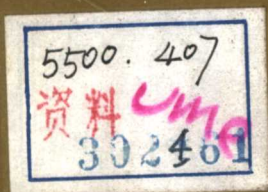 5500.407
资料 UMA
302461